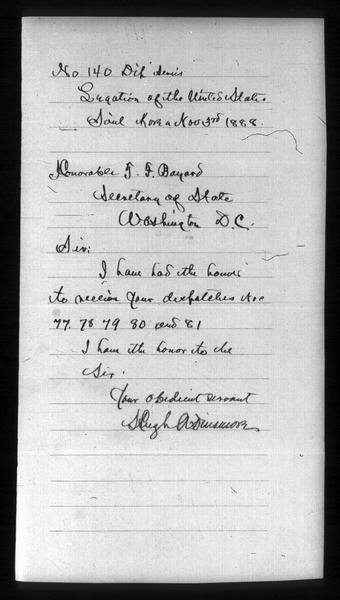 No 140 Dip Series
Legation of the United States
Söul Korea Nov 3rd 1888.
Honorable T. F. Bayard
Secretary of State
Washington D.C.
Sir:
I have had the honor
to receive your despatches Nos
77. 78 79 80 and 81
I have the honor to be
Sir.
Your obedient servant
Hugh A Dinsmore